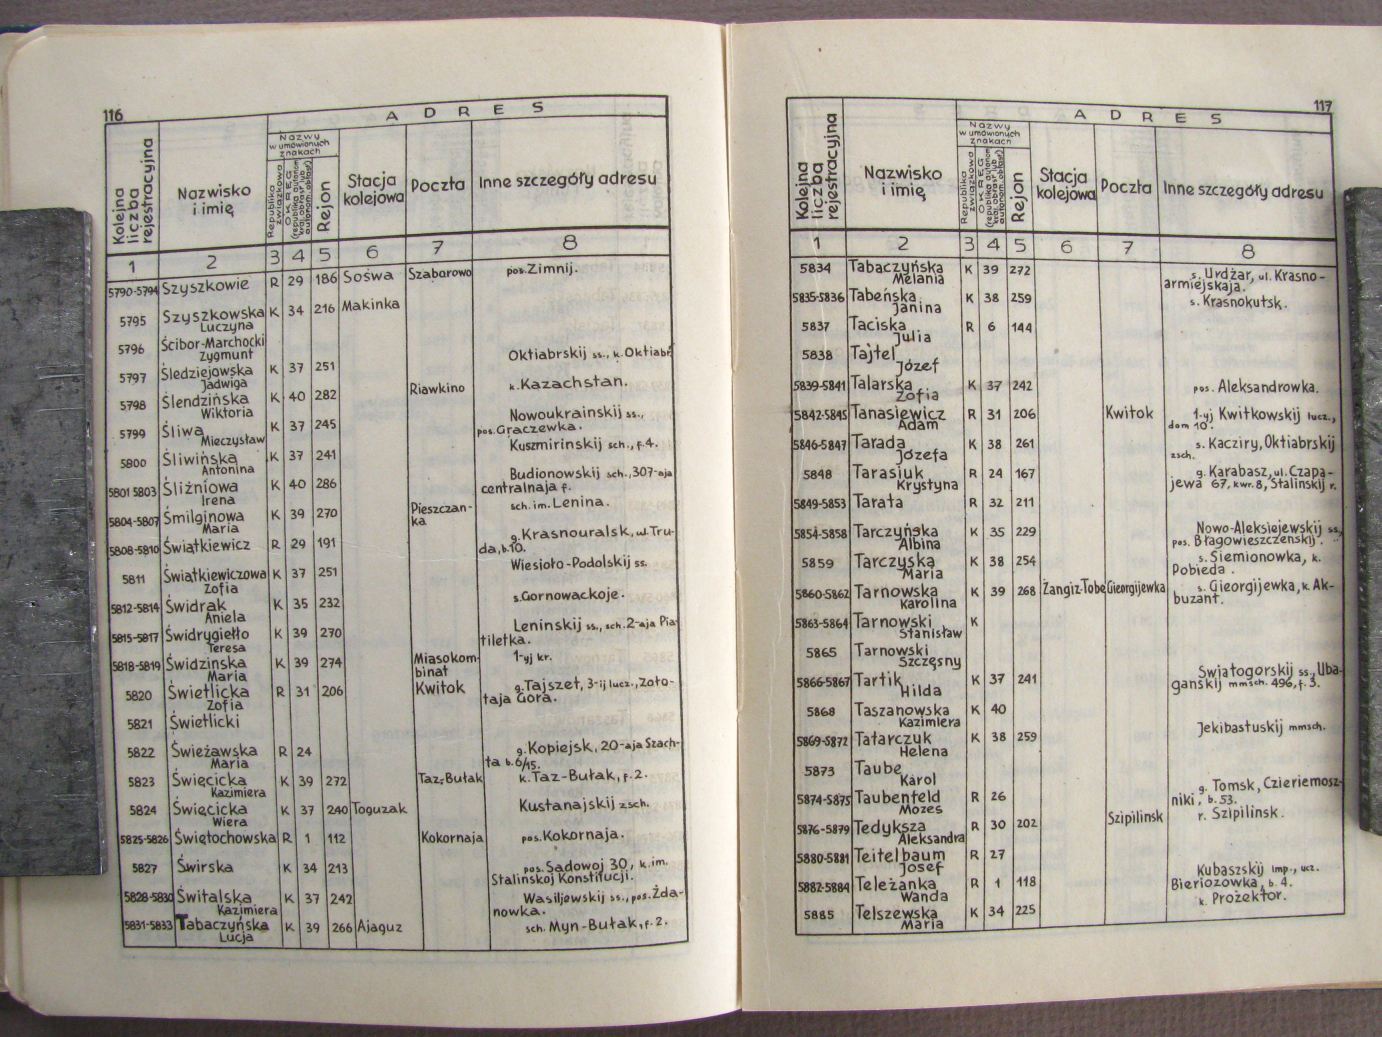 116
A D R E S
Kolejna liczba rejestracyjna
Nazwisko i imię
Nazwy w umówionych znakach
Republika związkowa
OKRĘG (republika autonom. kraj, obłast' lub autonom. obłast')
Rejon
Stacja kolejowa
Poczta
Inne szczegóły adresu
1 2 3 4 5 6 7 8
5790-5794 Szyszkowie R 29 186 Sośwa Szabarowo pos. Zimnij.
5795 Szyszkowska Luczyna K 34 216 Makinka
5796 Ścibor-Marchocki Zygmunt
5797 Śledziejowska Jadwiga K 37 251 Oktiabrskij ss., k. Oktiabr.
5798 Ślendzińska Wiktoria K 40 282 Riawkino k. Kazachstan.
5799 Śliwa Mieczysław K 37 245 Nowoukrainskij ss., pos. Graczewka.
5800 Śliwińska Antonina K 37 241 Kuszmirinskij sch., f. 4.
5801 5803 Śliżniowa Irena K 40 286 Budionowskij sch., 307-aja centralnaja f.
5804-5807 Śmilginowa Maria K 39 270 Pieszczanka sch. im. Lenina.
5808-5810 Świątkiewicz R 29 191 g. Krasnouralsk, ul. Truda, b. 10.
5811 Świątkiewiczowa Zofia K 37 251 Wiesioło-Podolskij ss.
5812-5814 Świdrak Aniela K 35 232 s. Gornowackoje.
5815-5817 Świdrygiełło Teresa K 39 270 Leninskij ss., sch. 2-aja Piatiletka.
5818-5819 Świdzińska Maria K 39 274 Miasokombinat 1-yj kr.
5820 Świetlicka Zofia R 31 206 Kwitok g. Tajszet, 3-ij lucz., Zołotaja Gora.
5821 Świetlicki
5822 Świeżawska Maria R 24 g. Kopiejsk, 20-aja Szachta b. 6/15.
5823 Święcicka Kazimiera K 39 272 Taz-Bułak k. Taz-Bułak, f. 2.
5824 Święcicka Wiera K 37 240 Toguzak Kustanajskij zsch.
5825-5826 Świętochowska R 1 112 Kokornaja pos. Kokornaja.
5827 Świrska K 34 213 pos. Sadowoj 30, k. im. Stalinskoj Konstitucji.
5828-5830 Świtalska Kazimiera K 37 242 Wasiljewskij ss., pos. Żdanowka.
5831-5833 Tabaczyńska Lucja K 39 266 Ajaguz sch. Myn-Bułak, f. 2.
117
A D R E S
Kolejna liczba rejestracyjna
Nazwisko i imię
Nazwy w umówionych znakach
Republika związkowa
OKRĘG (republika autonom. kraj, obłast' lub autonom. obłast')
Rejon
Stacja kolejowa
Poczta
Inne szczegóły adresu
1 2 3 4 5 6 7 8
5834 Tabaczyńska Melania K 39 272 s. Urdżar, ul. Krasnoarmiejskaja.
5835-5836 Tabeńska Janina K 38 259 s. Krasnokutsk.
5837 Taciska Julia R 6 144
5838 Tajtel Józef
5839-5841 Talarska Zofia K 37 242 pos. Aleksandrowka.
5842-5845 Tanasiewicz Adam R 31 206 Kwitok 1-yj Kwitkowskij lucz., dom 10.
5846-5847 Tarada Józefa K 38 261 s. Kacziry, Oktiabrskij zsch.
5848 Tarasiuk Krystyna R 24 167 g. Karabasz, ul. Czapajewa 67, kwr. 8, Stalinskij r.
5849-5853 Tarata R 32 211
5854-5858 Tarczyńska Albina K 35 229 Nowo-Aleksiejewskij ss, pos. Błagowieszczenskij.
5859 Tarczyska Maria K 38 254 s. Siemionowka, k. Pobieda.
5860-5862 Tarnowska Karolina K 39 268 Żangiz-Tobe Gieorgijewka s. Gieorgijewka, k. Akbuzant.
5863-5864 Tarnowski Stanisław K
5865 Tarnowski Szczęsny
5866-5867 Tartik Hilda K 37 241 Swjatogorskij ss, Ubaganskij mmsch. 496, f. 3.
5868 Taszanowska Kazimiera K 40
5869-5872 Tatarczuk Helena K 38 259 Jekibastuskij mmsch.
5873 Taube Karol
5874-5875 Taubenfeld Mozes R 26 g. Tomsk, Czieriemoszniki, b. 53.
5876-5879 Tedyksza Aleksandra R 30 202 Szipilinsk r. Szipilinsk.
5880-5881 Teitelbaum Josef R 27
5882-5884 Teleżanka Wanda R 1 118 Kubaszskij imp., ucz. Bieriozowka, b. 4.
5885 Telszewska Maria K 34 225 k. Prożektor.